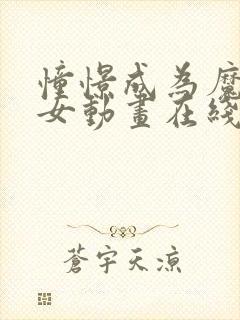 憧憬成为魔
女動畫在綫
蒼宇天涼